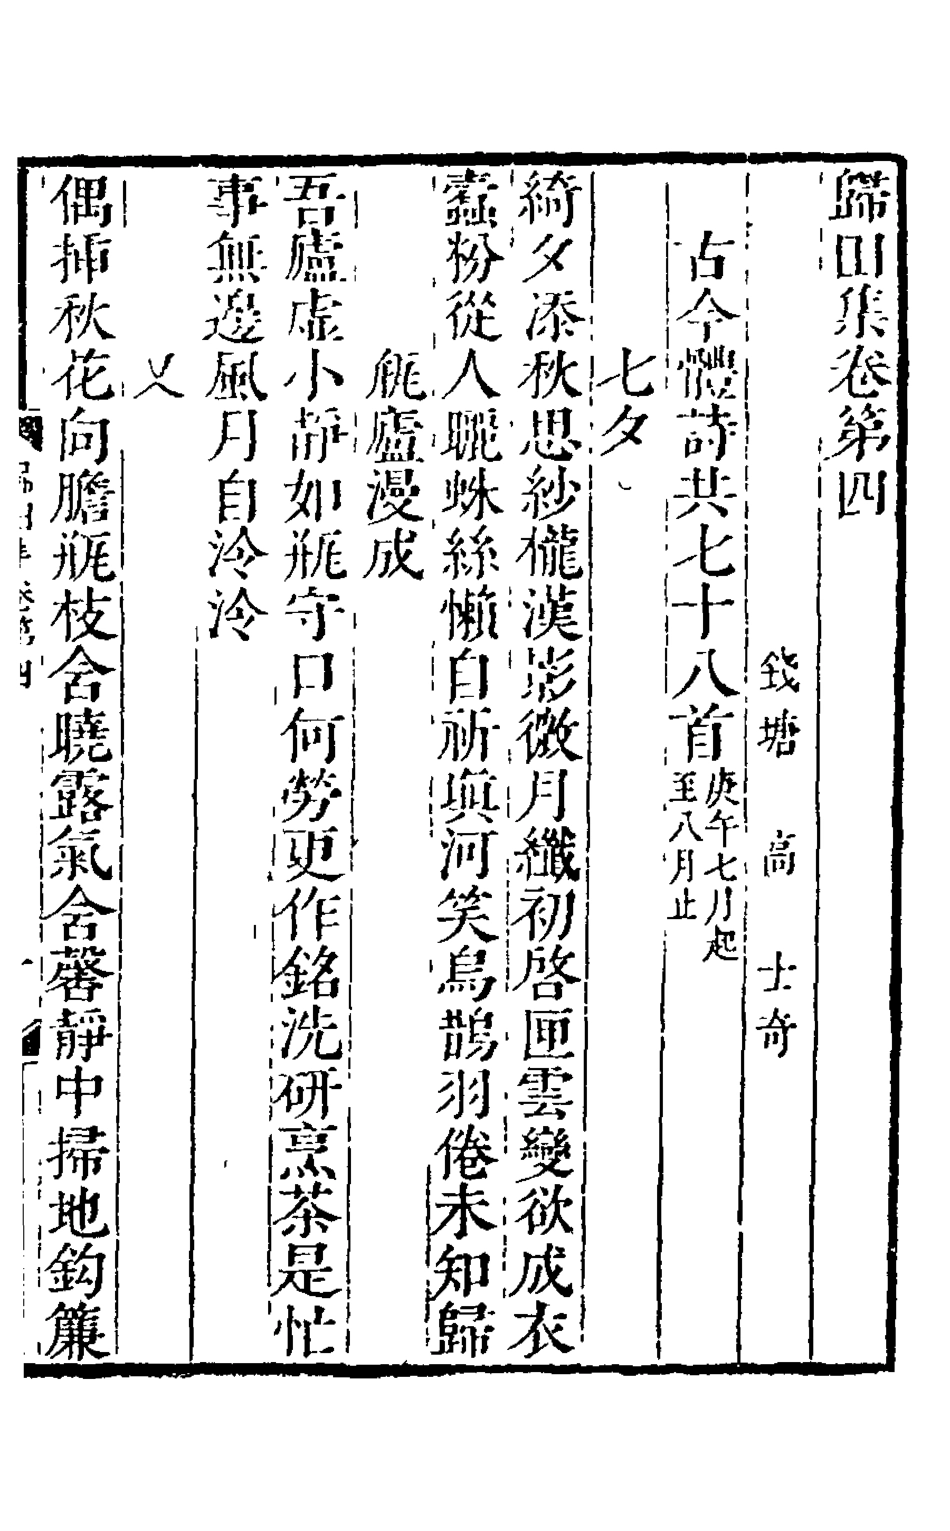 歸田集卷第四
錢塘 高 士奇
古今體詩共七十八首庚午七月起至八月止
七夕
綺夕添秋思紗櫳漢影微月纖初啓匣雲變欲成衣
蠹粉從人曬蛛絲懶自祈塡河笑烏鵲羽倦未知歸
觝廬漫成
吾廬虛小靜如瓶守口何勞更作銘洗研烹茶是忙
事無邊風月自泠泠
又
偶揷秋花向膽瓶枝含曉露氣含馨靜中掃地鈎簾
歸田集卷第四